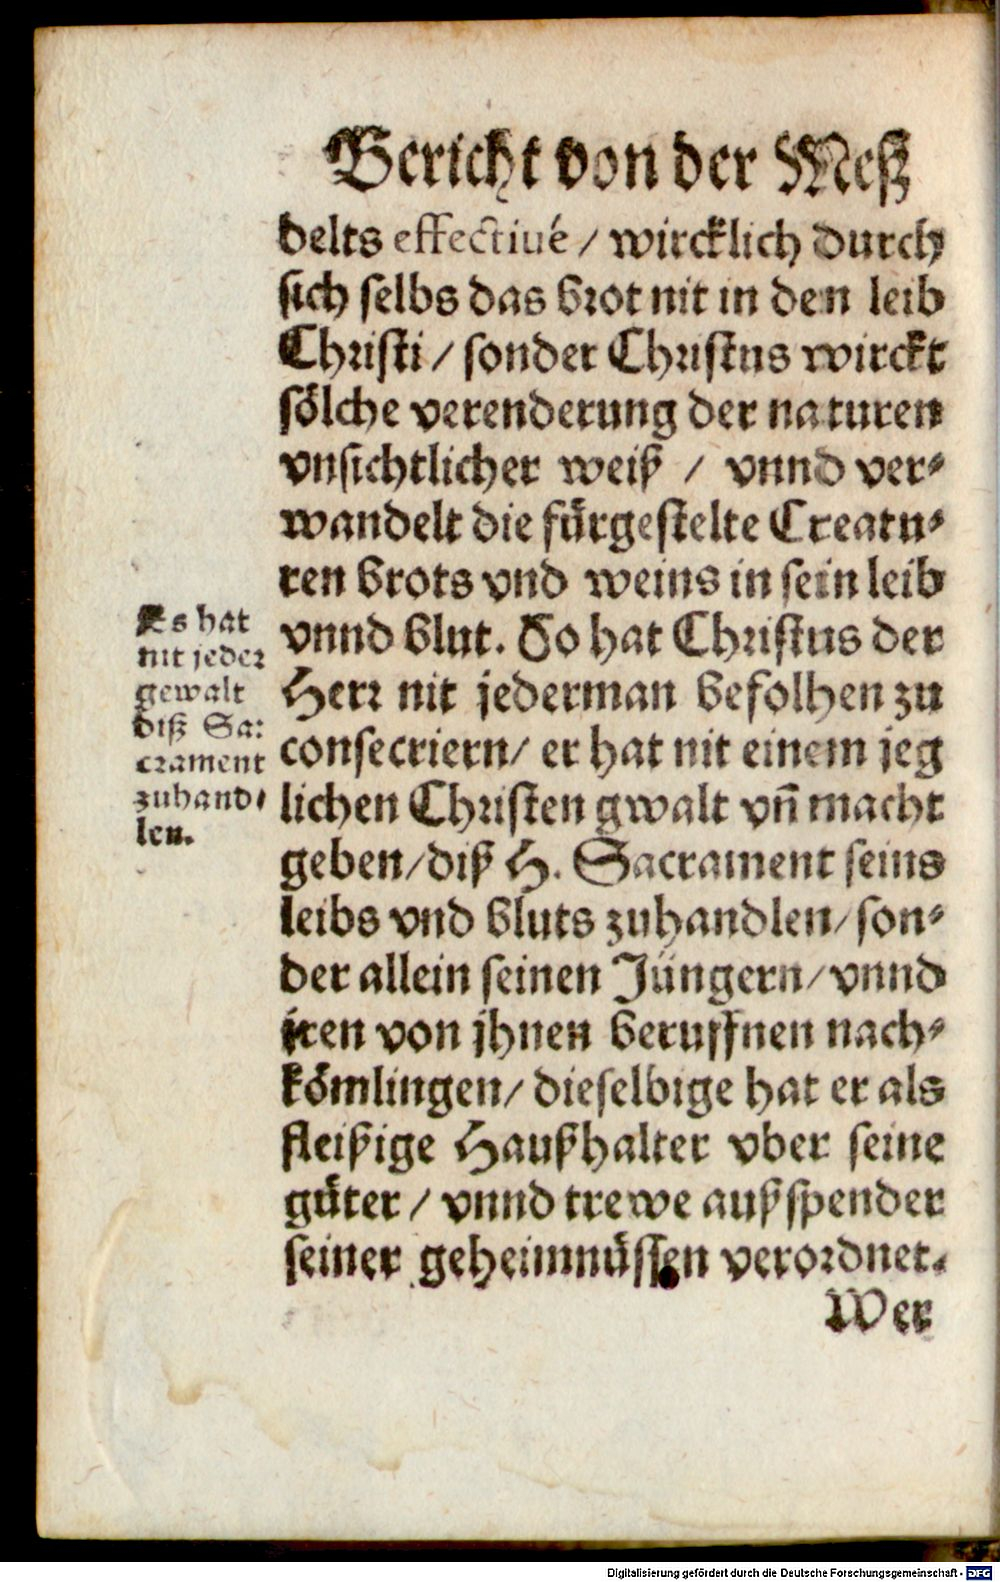 Bericht von der Meß
delts effectiué / wircklich durch
sich selbs das brot nit in den leib
Christi / sonder Christus wirckt
sölche verenderung der naturen
vnsichtlicher weiß / vnnd ver-
wandelt die fürgestelte Creatu-
ren brots vnd weins in sein leib
vnnd blut. So hat Christus der
Herr nit jederman befolhen zu
consecriern / er hat nit einem jeg
lichen Christen gwalt vñ macht
geben / diß H. Sacrament seins
leibs vnd bluts zuhandlen / son-
der allein seinen Jüngern / vnnd
jren von jhnen beruffnen nach-
kömlingen / dieselbige hat er als
fleißige Haußhalter vber seine
güter / vnnd trewe außspender
seiner geheimnüssen verordnet.
Wer
Es hat
nit jeder
gewalt
diß Sa-
crament
zuhand-
len.
Digitalisierung gefördert durch die Deutsche Forschungsgemeinschaft - DFG